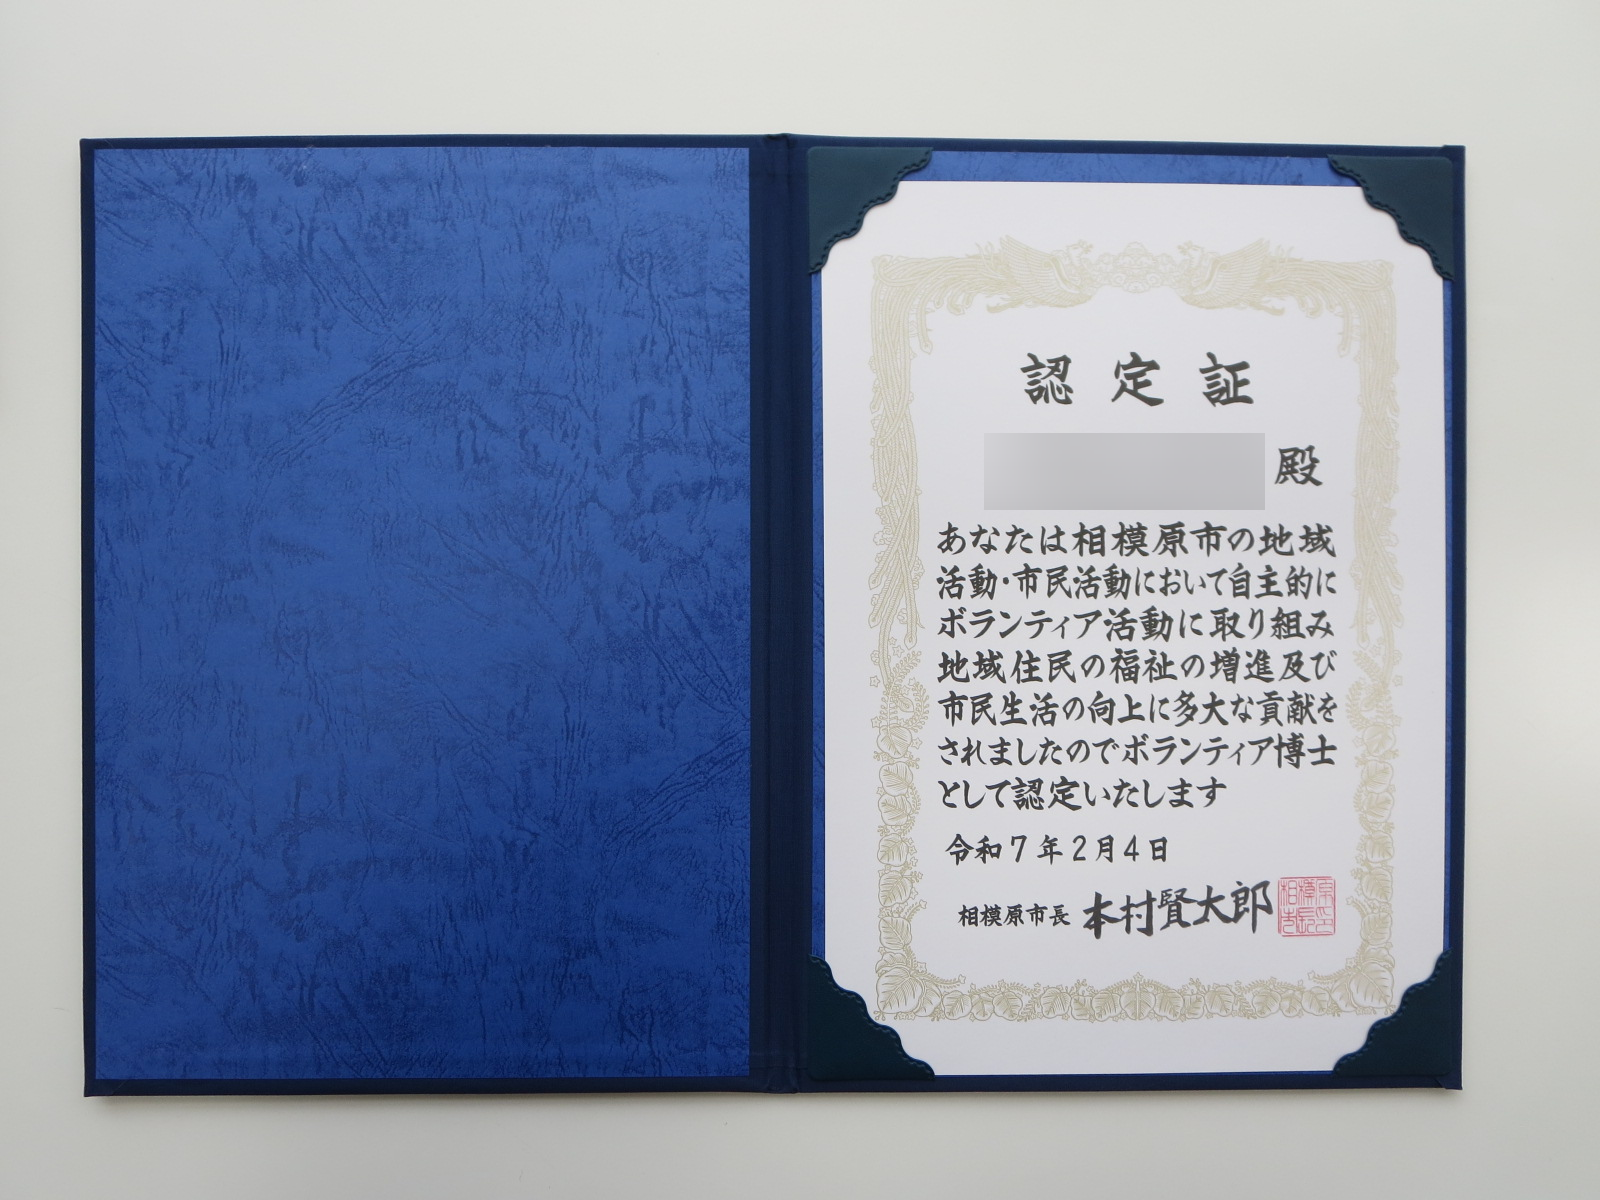 認定証
殿
あなたは相模原市の地域
活動・市民活動において自主的に
ボランティア活動に取り組み
地域住民の福祉の増進及び
市民生活の向上に多大な貢献を
されましたのでボランティア博士
として認定いたします
令和7年2月4日
相模原市長 本村賢太郎